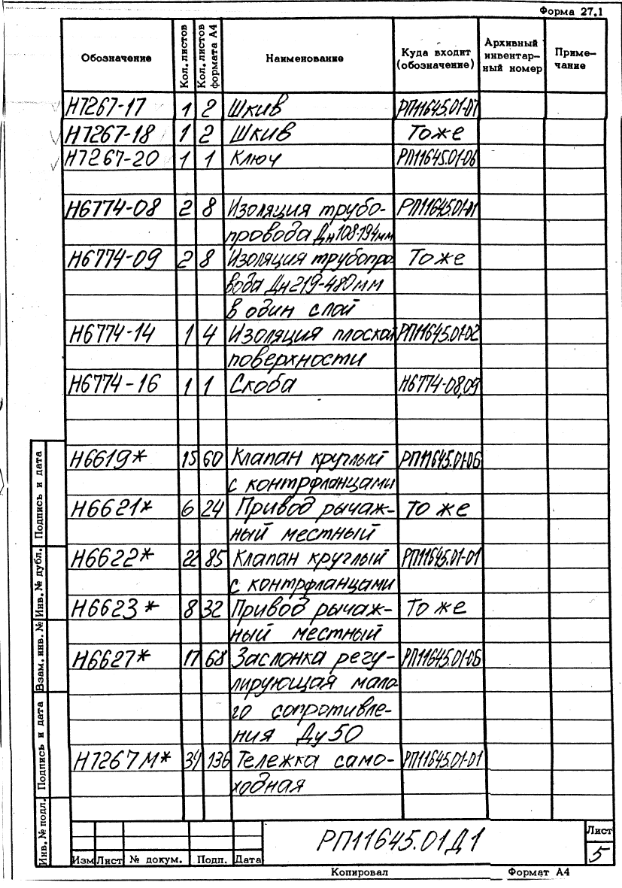 Форма 27.1
Обозначение Кол. листов Кол. листов формата А4 Наименование Куда входит (обозначение) Архивный инвентар-ный номер Приме-чание
Н7267-17 1 2 Шкив РП11645.01-01
Н7267-18 1 2 Шкив То же
Н7267-20 1 1 Ключ РП11645.01-06
Н6774-08 2 8 Изоляция трубо- РП11645.01-01
провода Дн108-194мм
Н6774-09 2 8 Изоляция трубопро То же
вода Дн219-480мм
в один слой
Н6774-14 1 4 Изоляция плоской РП11645.01-02
поверхности
Н6774-16 1 1 Скоба Н6774-08,09
Н6619* 15 60 Клапан круглый РП11645.01-06
с контрфланцами
Н6621* 6 24 Привод рычаж- То же
ный местный
Н6622* 22 85 Клапан круглый РП11645.01-01
с контрфланцами
Н6623* 8 32 Привод рычаж- То же
ный местный
Н6627* 17 68 Заслонка регу- РП11645.01-06
лирующая мало
го сопротивле-
ния Ду50
Н7267М* 34 136 Тележка само- РП11645.01-01
ходная
Инв. № подл. Подпись и дата Взам. инв. № Инв. № дубл. Подпись и дата
РП11645.01Д1
Лист
5
Изм Лист № докум. Подп. Дата
Копировал Формат А4